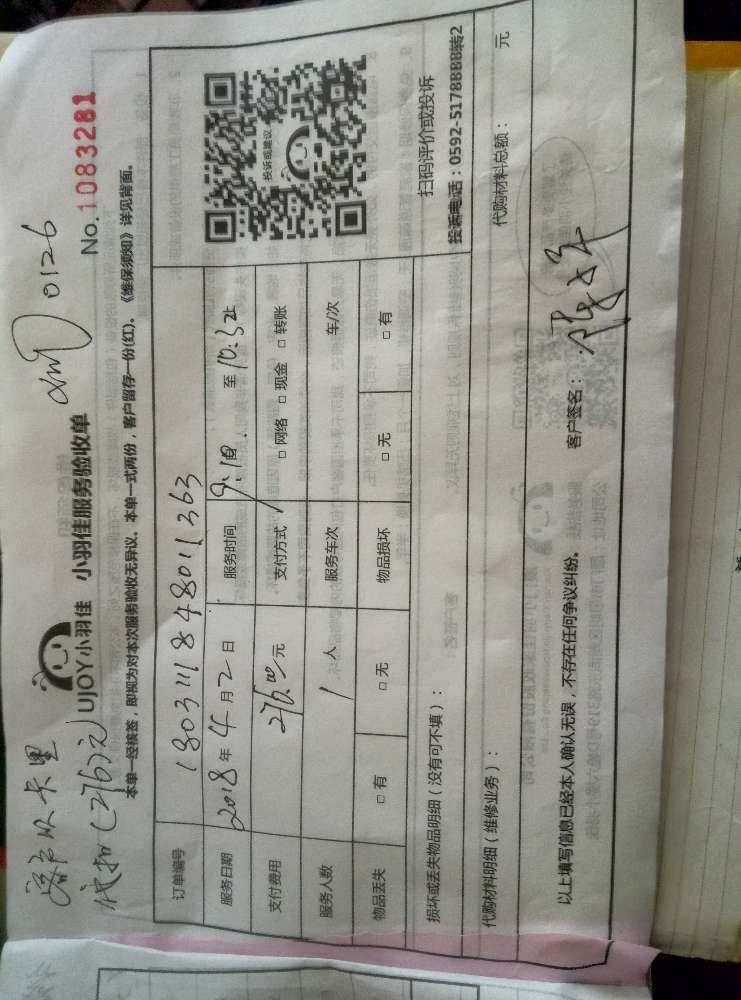 客户从卡里
代扣(276)元
0126
UJOY小羽佳 小羽佳服务验收单
No.1083281
本单一经核签，即视为对本次服务验收无异议。本单一式两份，客户留存一份(红)。《维保须知》详见背面。
订单编号 180311848011363
服务日期 2018年4月2日 服务时间 9:10 至 10:32止
支付费用 276.00元 支付方式 □ 网络 □ 现金 □ 转账
服务人数 1人 服务车次 车/次
物品丢失 □ 有 □ 无 物品损坏 □ 无 □ 有
投诉或建议
扫码评价或投诉
投诉电话：0592-5178888转2
损坏或丢失物品明细（没有可不填）：
代购材料明细（维修业务）： 代购材料总额： 元
以上填写信息已经本人确认无误，不存在任何争议纠纷。 客户签名：